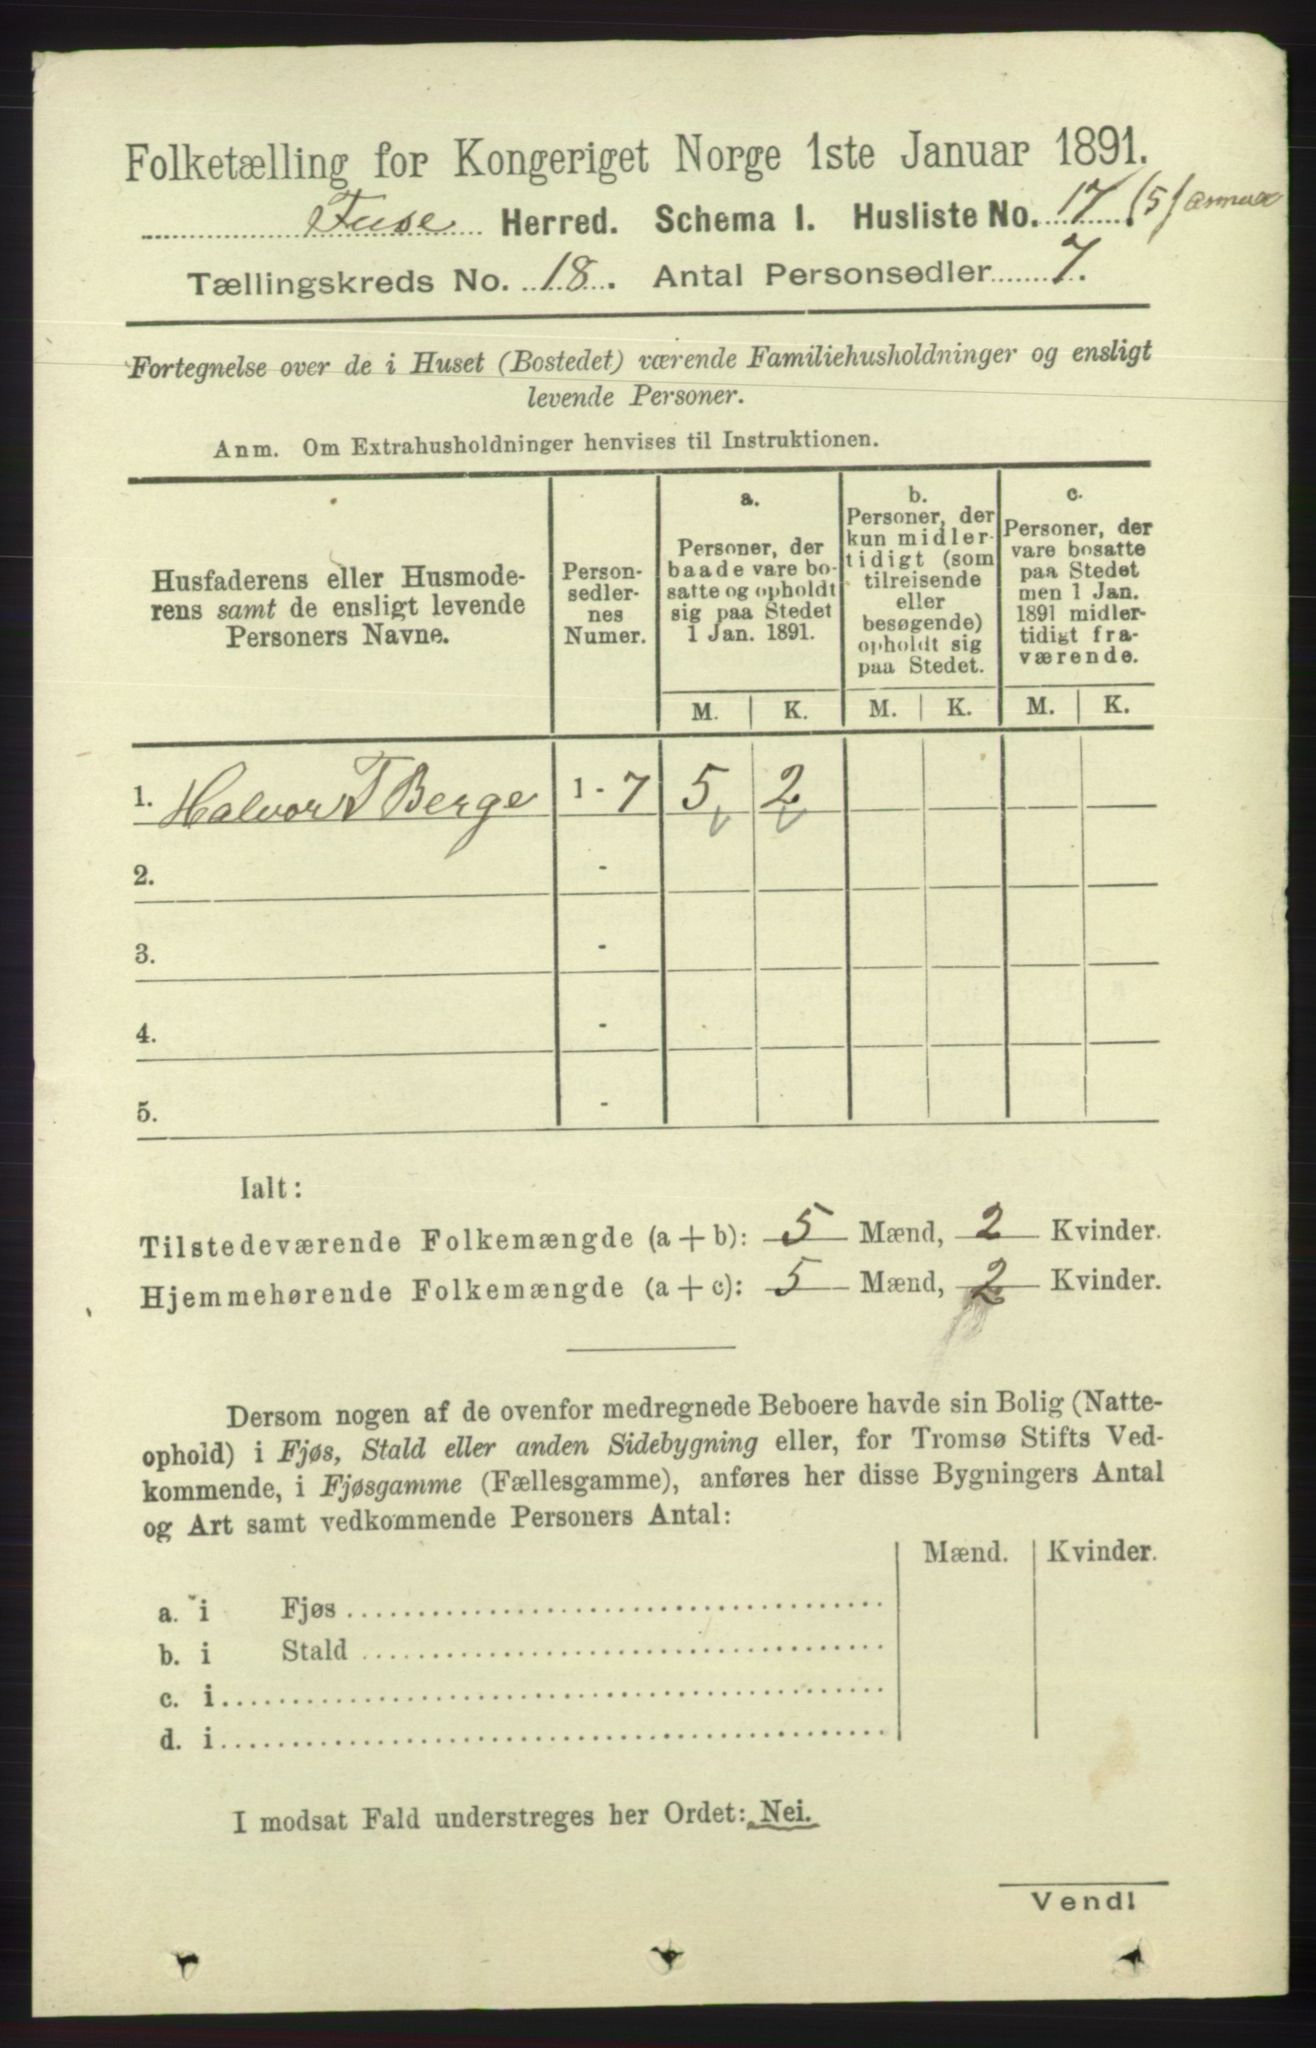 Folketælling for Kongeriget Norge 1ste Januar 1891.
Fuse Herred. Schema I. Husliste No. 17 (5)
Tællingskreds No. 18. Antal Personsedler 7.
Fortegnelse over de i Huset (Bostedet) værende Familiehusholdninger og ensligt
levende Personer.
Anm. Om Extrahusholdninger henvises til Instruktionen.
Husfaderens eller Husmode-
rens samt de ensligt levende
Personers Navne.
Person-
sedler-
nes
Numer.
a.
Personer, der
baade vare bo-
satte og opholdt
sig paa Stedet
1 Jan. 1891.
b.
Personer, der
kun midler-
tidigt (som
tilreisende
eller
besøgende)
opholdt sig
paa Stedet.
c.
Personer, der
vare bosatte
paa Stedet
men 1 Jan.
1891 midler-
tidigt fra-
værende.
M. K. M. K. M. K.
1. Halvor T Berge 1 - 7 5 2
2. -
3. -
4. -
5. -
Ialt:
Tilstedeværende Folkemængde (a + b): 5 Mænd, 2 Kvinder.
Hjemmehørende Folkemængde (a + c): 5 Mænd, 2 Kvinder.
Dersom nogen af de ovenfor medregnede Beboere havde sin Bolig (Natte-
ophold) i Fjøs, Stald eller anden Sidebygning eller, for Tromsø Stifts Ved-
kommende, i Fjøsgamme (Fællesgamme), anføres her disse Bygningers Antal
og Art samt vedkommende Personers Antal:
Mænd. Kvinder.
a. i Fjøs
b. i Stald
c. i
d. i
I modsat Fald understreges her Ordet: Nei.
Vend!